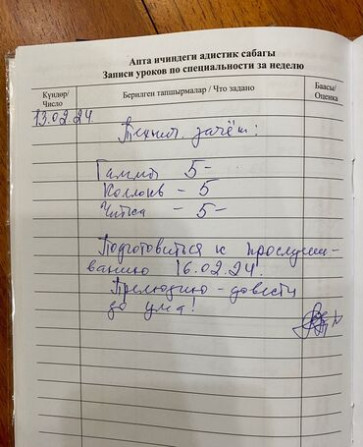 Апта ичиндеги адистик сабагы
Записи уроков по специальности за неделю
Күндөр/ Число
Берилген тапшырмалар / Что задано
Баасы/ Оценка
13.02.24
Технич. зачёт:
Гаммы 5-
Коллокв - 5
Читка - 5-
Подготовиться к прослуши-
ванию 16.02.24.
Прелюдию - довести
до ума!